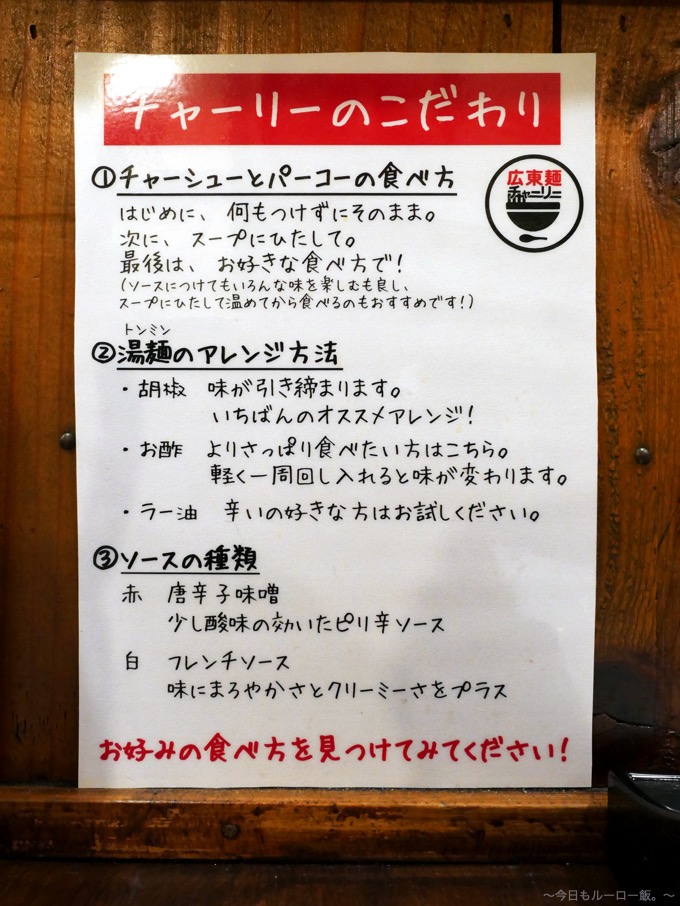 チャーリーのこだわり
①チャーシューとパーコーの食べ方
広東麺
チャーリー
はじめに、何もつけずにそのまま。
次に、スープにひたして。
最後は、お好きな食べ方で!
(ソースにつけてもいろんな味を楽しむも良し、
スープにひたして温めてから食べるのもおすすめです!)
トンミン
②湯麺のアレンジ方法
・胡椒 味が引き締まります。
いちばんのオススメアレンジ!
・お酢 よりさっぱり食べたい方はこちら。
軽く一周回し入れると味が変わります。
・ラー油 辛いの好きな方はお試しください。
③ソースの種類
赤 唐辛子味噌
少し酸味の効いたピリ辛ソース
白 フレンチソース
味にまろやかさとクリーミーさをプラス
お好みの食べ方を見つけてみてください!
〜今日もルーロー飯。〜